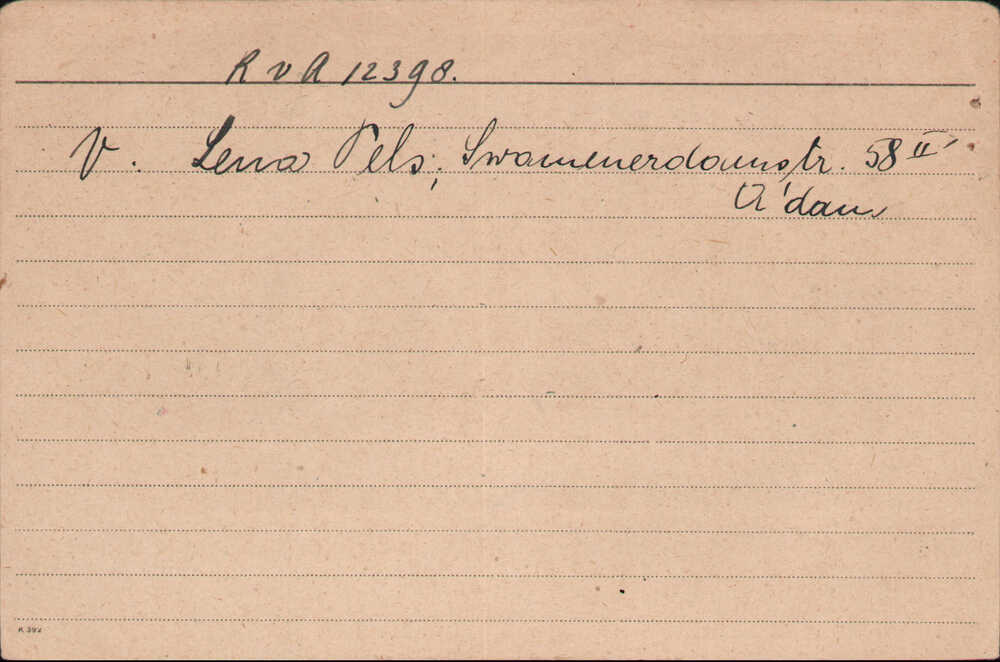 R v A 12398.
V. Lena Pels; Swamenerdamstr. 58 II
A'dam
K 392